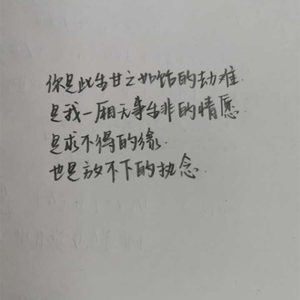 你是此生甘之如饴的劫难
是我一厢无事生非的情愿
是求不得的缘
也是放不下的执念